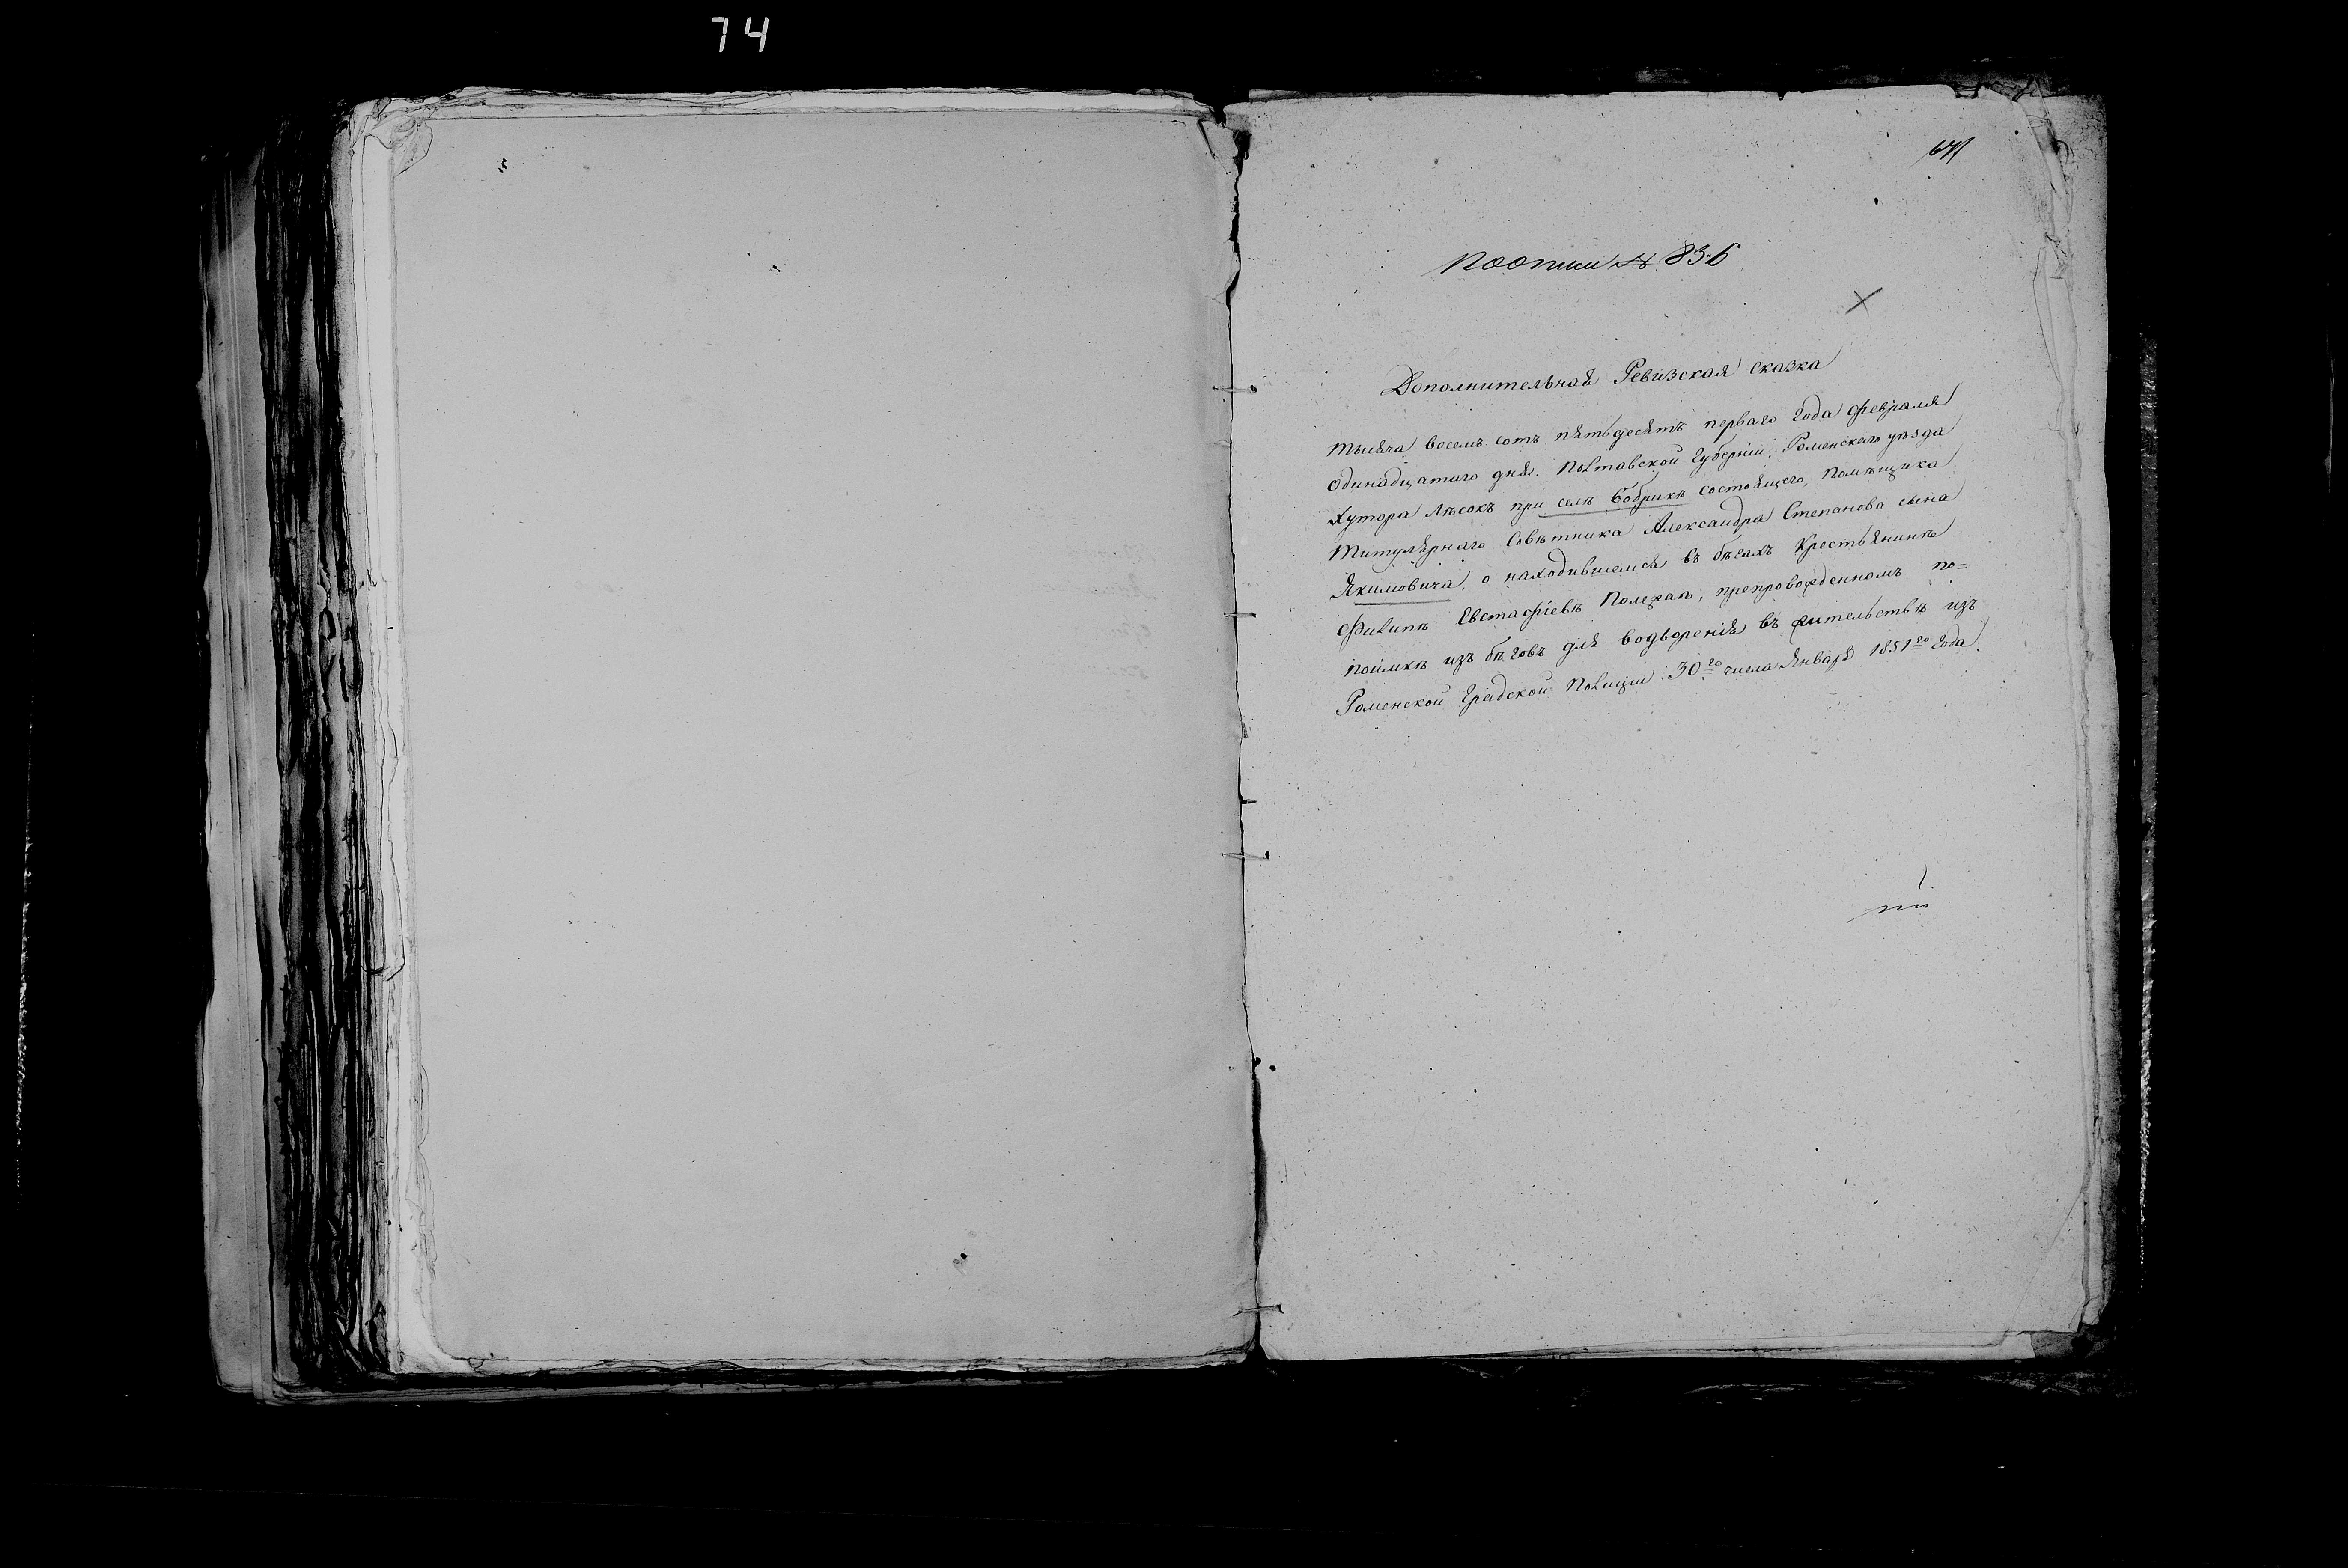 74
По описи № 836
Дополнительная Ревизская сказка
тысяча восемь сотъ пятьдесятъ перваго года февраля
одинадцатаго дня. Полтавской Губерніи, Роменскаго уѣзда
Хутора Лѣсокъ при селѣ Бобрикѣ состоящего, Помѣщика
Титулярнаго Совѣтника Александра Степанова сына
Якимовича, о находившемся въ бѣгахъ Крестьянинѣ
Филипѣ Евстафіевѣ Полежаѣ, препровожденномъ по=
поимкѣ изъ бѣговъ для водворенія въ жительствѣ изъ
Роменской Градской Полиціи 30го числа Января 1851го года.